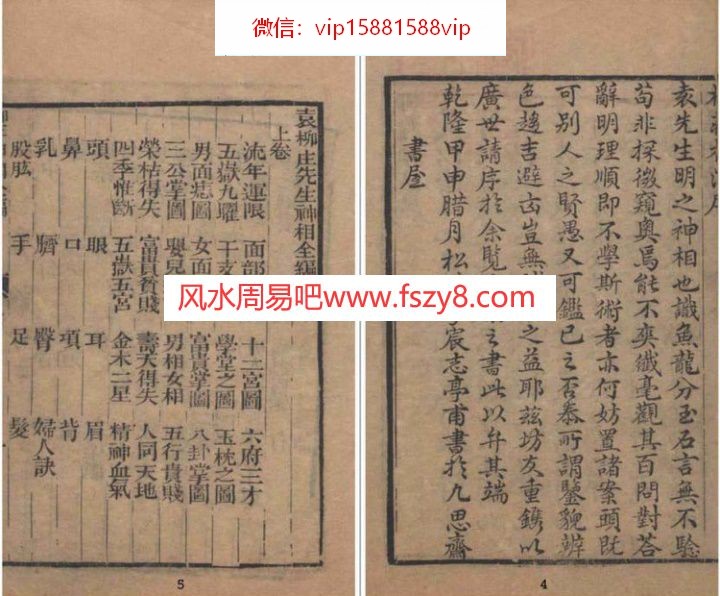 微信：vip15881588vip
袁先生明之神相也識魚龍分玉石言無不驗
苟非探微窺奧焉能不爽纖毫觀其百問對答
辭明理順即不學斯術者亦何妨置諸案頭既
可別人之賢愚又可鑑已之否泰所謂鑒貌辨
色趨吉避凶豈無之益耶茲坊友重鐫以
廣世請序於余覽之書此以弁其端
乾隆甲申腊月松宸志亭甫書於九思齋
書屋
4
风水周易吧www.fszy8.com
袁柳庄先生神相全編
上卷
流年運限 面部 十二宮圖 六府三才
五嶽九曜 干支 學堂之圖 玉枕之圖
男面痣圖 女面 富貴掌圖 八卦掌圖
三公掌圖 嬰兒 男相女相 五行貴賤
榮枯得失 富貴貧賤 壽夭得失 人同天地
四季惟斷 五嶽五宮 金木二星 精神血氣
頭 眼 耳 眉
鼻 口 項 背
乳 臍 臀 婦人訣
股肱 手 足 髮
5